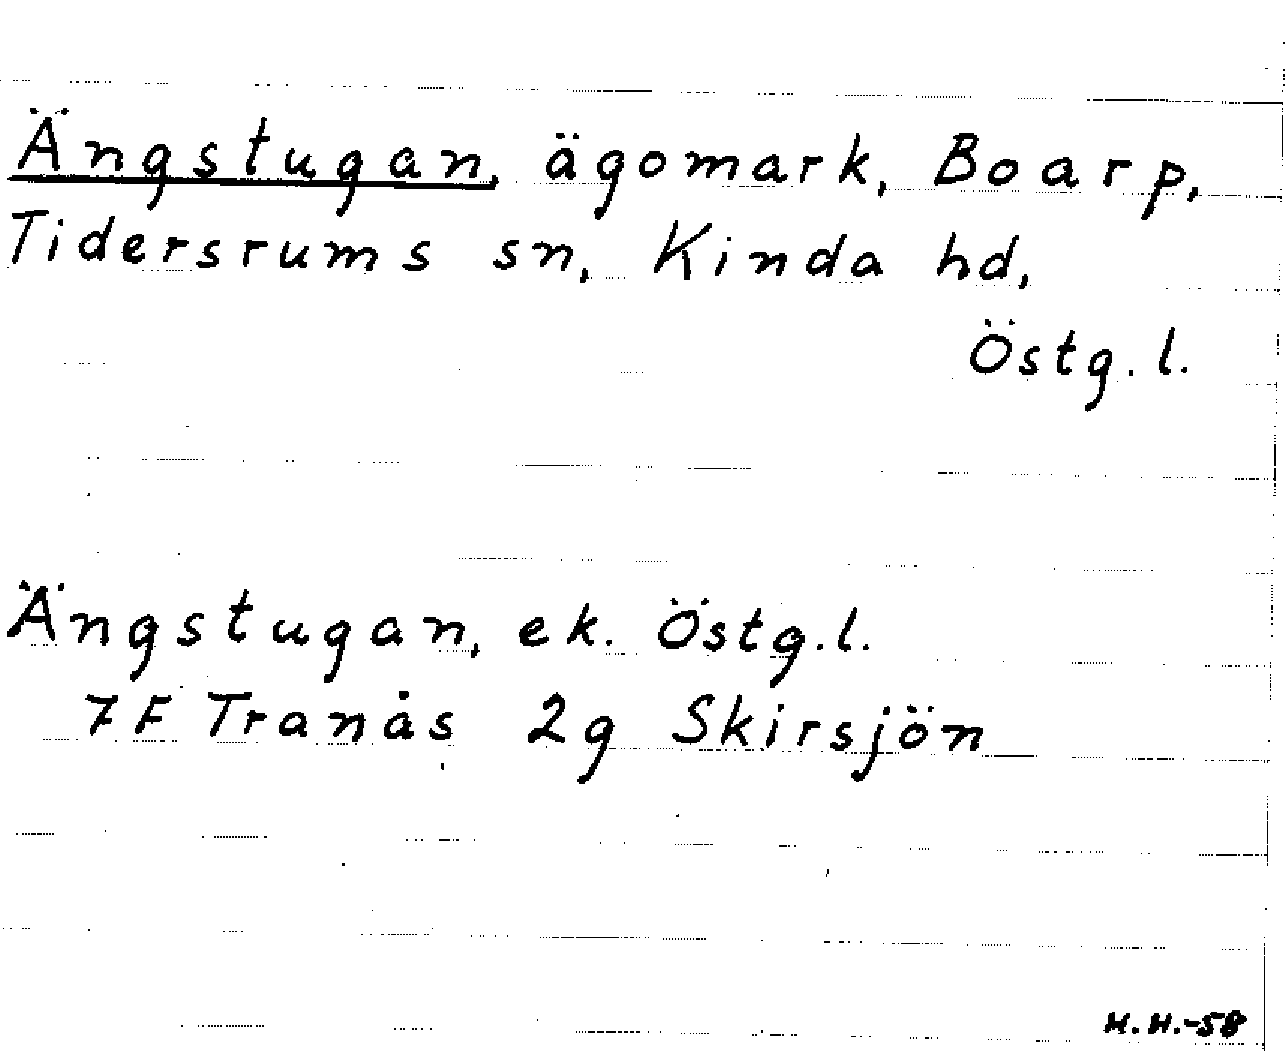 Ängstugan, ägomark, Boarp,
Tidersrums sn, Kinda hd,
Östg. l.
Ängstugan, ek. Östg. l.
7F Tranås 2g Skirsjön
H.H.-58